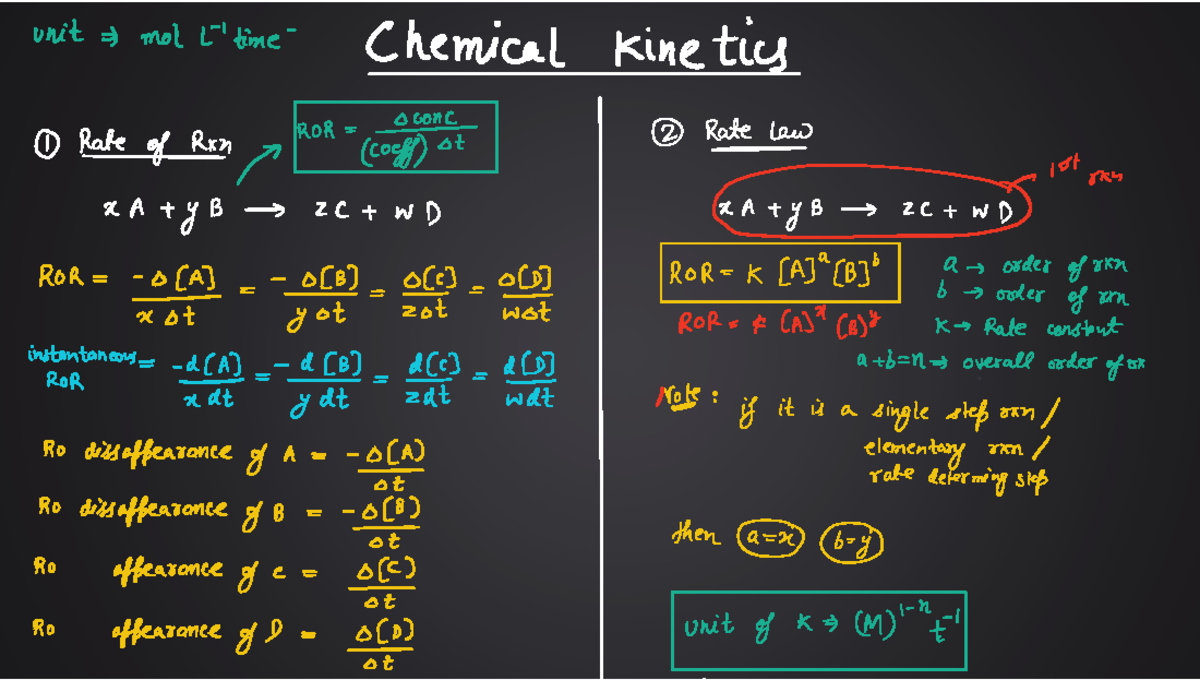 unit ⇒ mol L⁻¹ time⁻
Chemical Kinetics
① Rate of Rxn
ROR = Δconc / (coeff) Δt
xA + yB → zC + wD
ROR = -Δ[A] / xΔt = -Δ[B] / yΔt = Δ[C] / zΔt = Δ[D] / wΔt
instantaneous ROR = -d[A] / x dt = -d[B] / y dt = d[C] / z dt = d[D] / w dt
Ro dissappearance of A = -Δ[A] / Δt
Ro dissappearance of B = -Δ[B] / Δt
Ro appearance of C = Δ[C] / Δt
Ro appearance of D = Δ[D] / Δt
② Rate Law
1st rxn
xA + yB → zC + wD
ROR = K [A]ᵃ [B]ᵇ
ROR = K [A]ˣ [B]ʸ
a → order of rxn
b → order of rxn
K → Rate constant
a+b=n → overall order of rx
Note : if it is a single step rxn /
elementary rxn /
rate determing step
then a=x b=y
unit of K ⇒ (M)¹⁻ⁿ t⁻¹